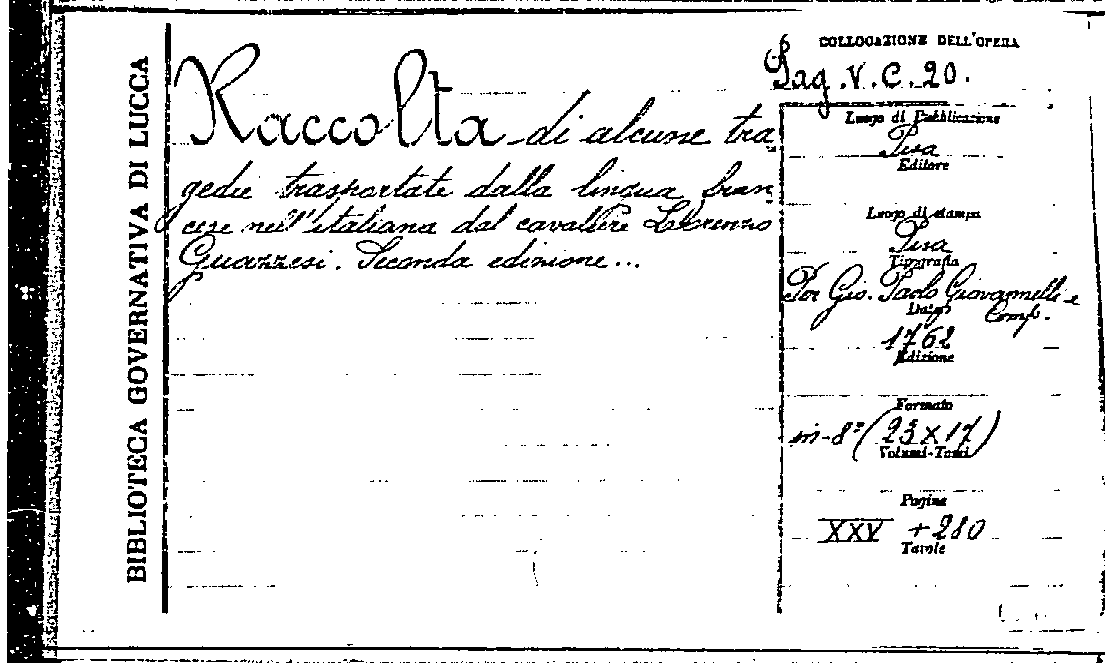 BIBLIOTECA GOVERNATIVA DI LUCCA
Raccolta di alcune tra
gedie trasportate dalla lingua fran
cese nell'italiana dal cavaliere Lorenzo
Guazzesi. Seconda edizione...
COLLOCAZIONE DELL'OPERA
Pag. V. C. 20.
Luogo di Pubblicazione
Pisa
Editore
Luogo di stampa
Pisa
Tipografia
Per Gio. Paolo Giovannelli e
Comp.
1762
Edizione
Formato
in-8° (23 x 17)
Volumi-Tomi
Pagine
XXV + 280
Tavole